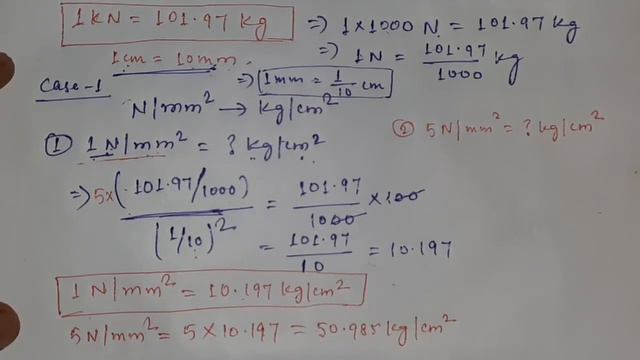 1 kN = 101.97 kg => 1 x 1000 N = 101.97 kg
1 cm = 10 mm. => 1 N = 101.97/1000 kg
Case-1 => 1 mm = 1/10 cm
N/mm² → kg/cm²
① 1 N/mm² = ? kg/cm²
② 5 N/mm² = ? kg/cm²
=> 5x (101.97/1000) / (1/10)² = 101.97/1000 x 100
= 101.97/10 = 10.197
1 N/mm² = 10.197 kg/cm²
5 N/mm² = 5 x 10.197 = 50.985 kg/cm²